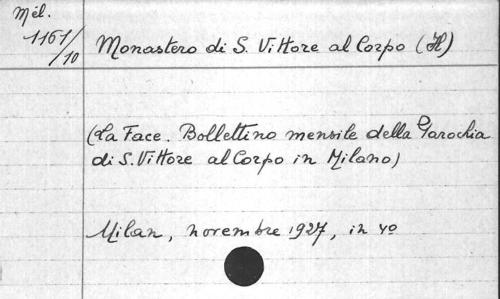 Mél.
1161/10
Monastero di S. Vittore al Corpo (Il)
(La Face. Bollettino mensile della Parochia
di S. Vittore al Corpo in Milano)
Milan, novembre 1927, in 4º